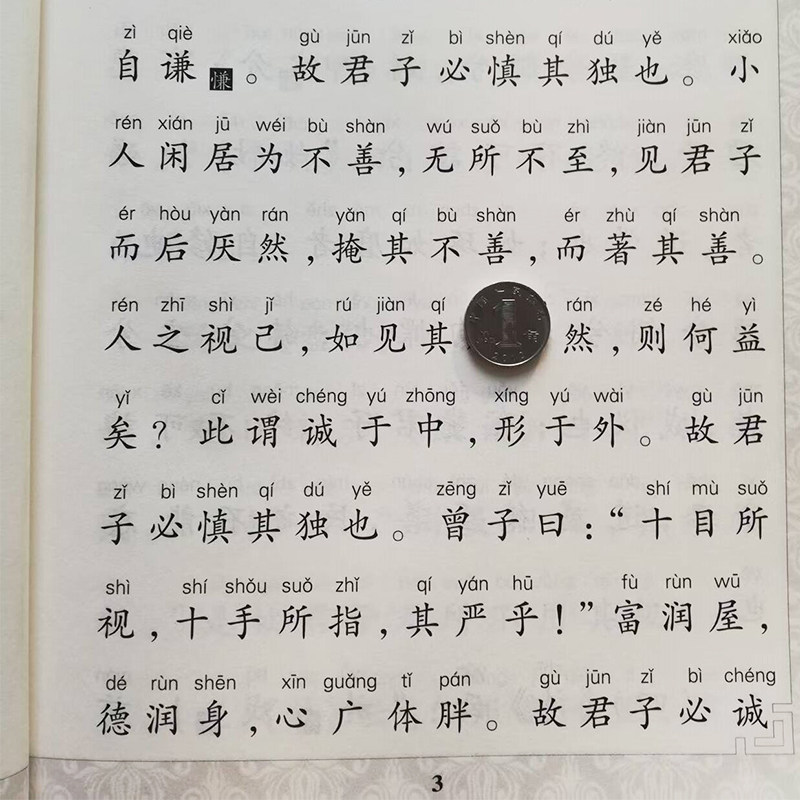 zì qiè gù jūn zǐ bì shèn qí dú yě xiǎo
自谦慊。故君子必慎其独也。小
rén xián jū wéi bù shàn wú suǒ bù zhì jiàn jūn zǐ
人闲居为不善,无所不至,见君子
ér hòu yàn rán yǎn qí bù shàn ér zhù qí shàn
而后厌然,掩其不善,而著其善。
rén zhī shì jǐ rú jiàn qí rán zé hé yì
人之视己,如见其然,则何益
yǐ cǐ wèi chéng yú zhōng xíng yú wài gù jūn
矣?此谓诚于中,形于外。故君
zǐ bì shèn qí dú yě zēng zǐ yuē shí mù suǒ
子必慎其独也。曾子曰:“十目所
shì shí shǒu suǒ zhǐ qí yán hū fù rùn wū
视,十手所指,其严乎!”富润屋,
dé rùn shēn xīn guǎng tǐ pán gù jūn zǐ bì chéng
德润身,心广体胖。故君子必诚
3